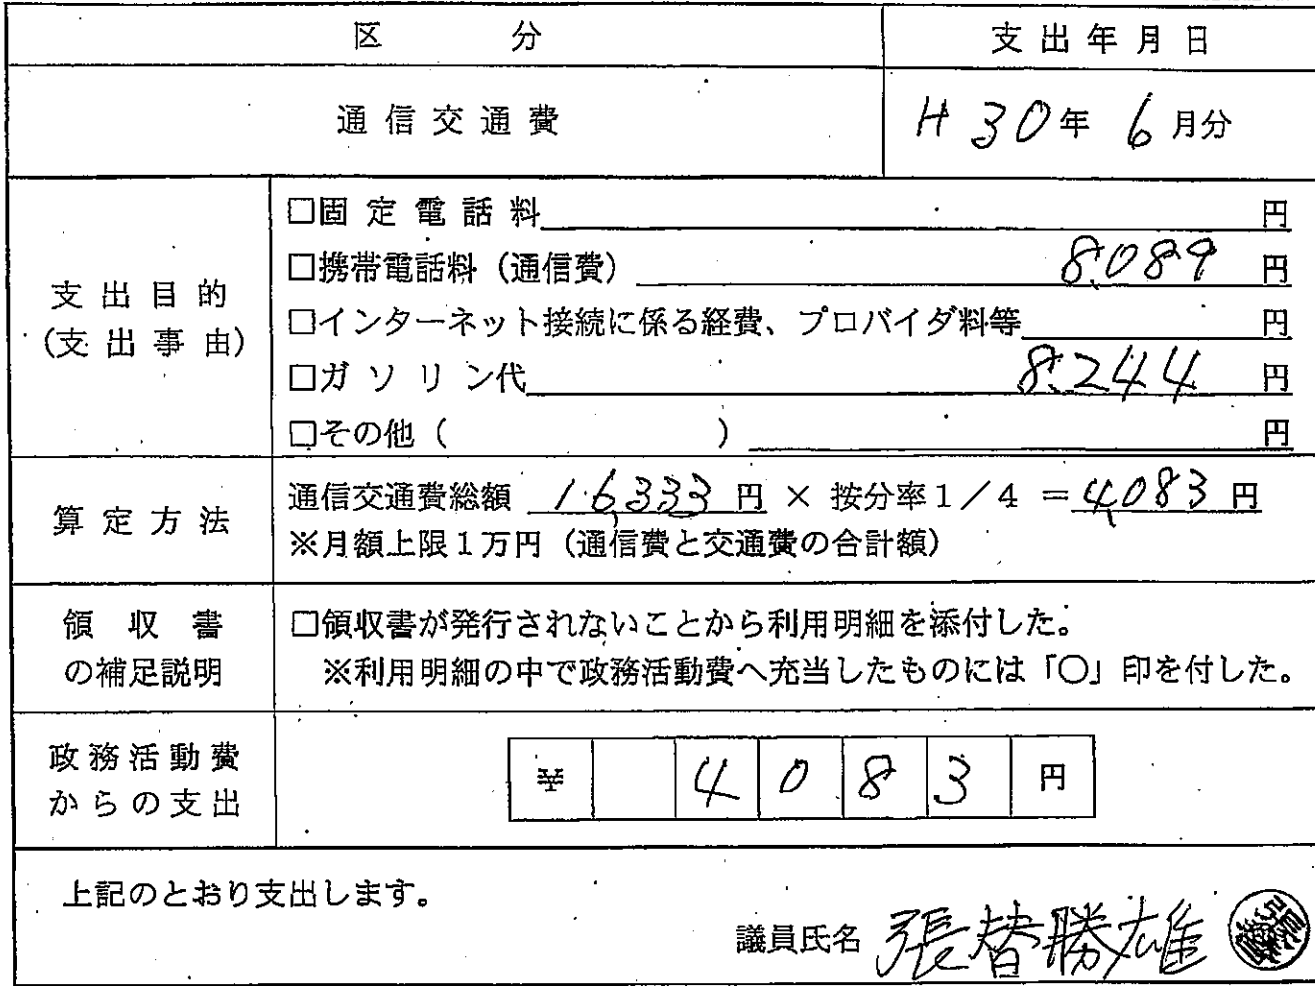 区分 支出年月日
通信交通費 H30年6月分
支出目的
(支出事由)
□固定電話料 円
□携帯電話料（通信費） 8,089 円
□インターネット接続に係る経費、プロバイダ料等 円
□ガソリン代 8,244 円
□その他（ ） 円
算定方法
通信交通費総額 16,333 円 × 按分率1／4 ＝ 4,083 円
※月額上限１万円（通信費と交通費の合計額）
領収書
の補足説明
□領収書が発行されないことから利用明細を添付した。
※利用明細の中で政務活動費へ充当したものには「〇」印を付した。
政務活動費
からの支出
¥ 4 0 8 3 円
上記のとおり支出します。
議員氏名 張替勝雄